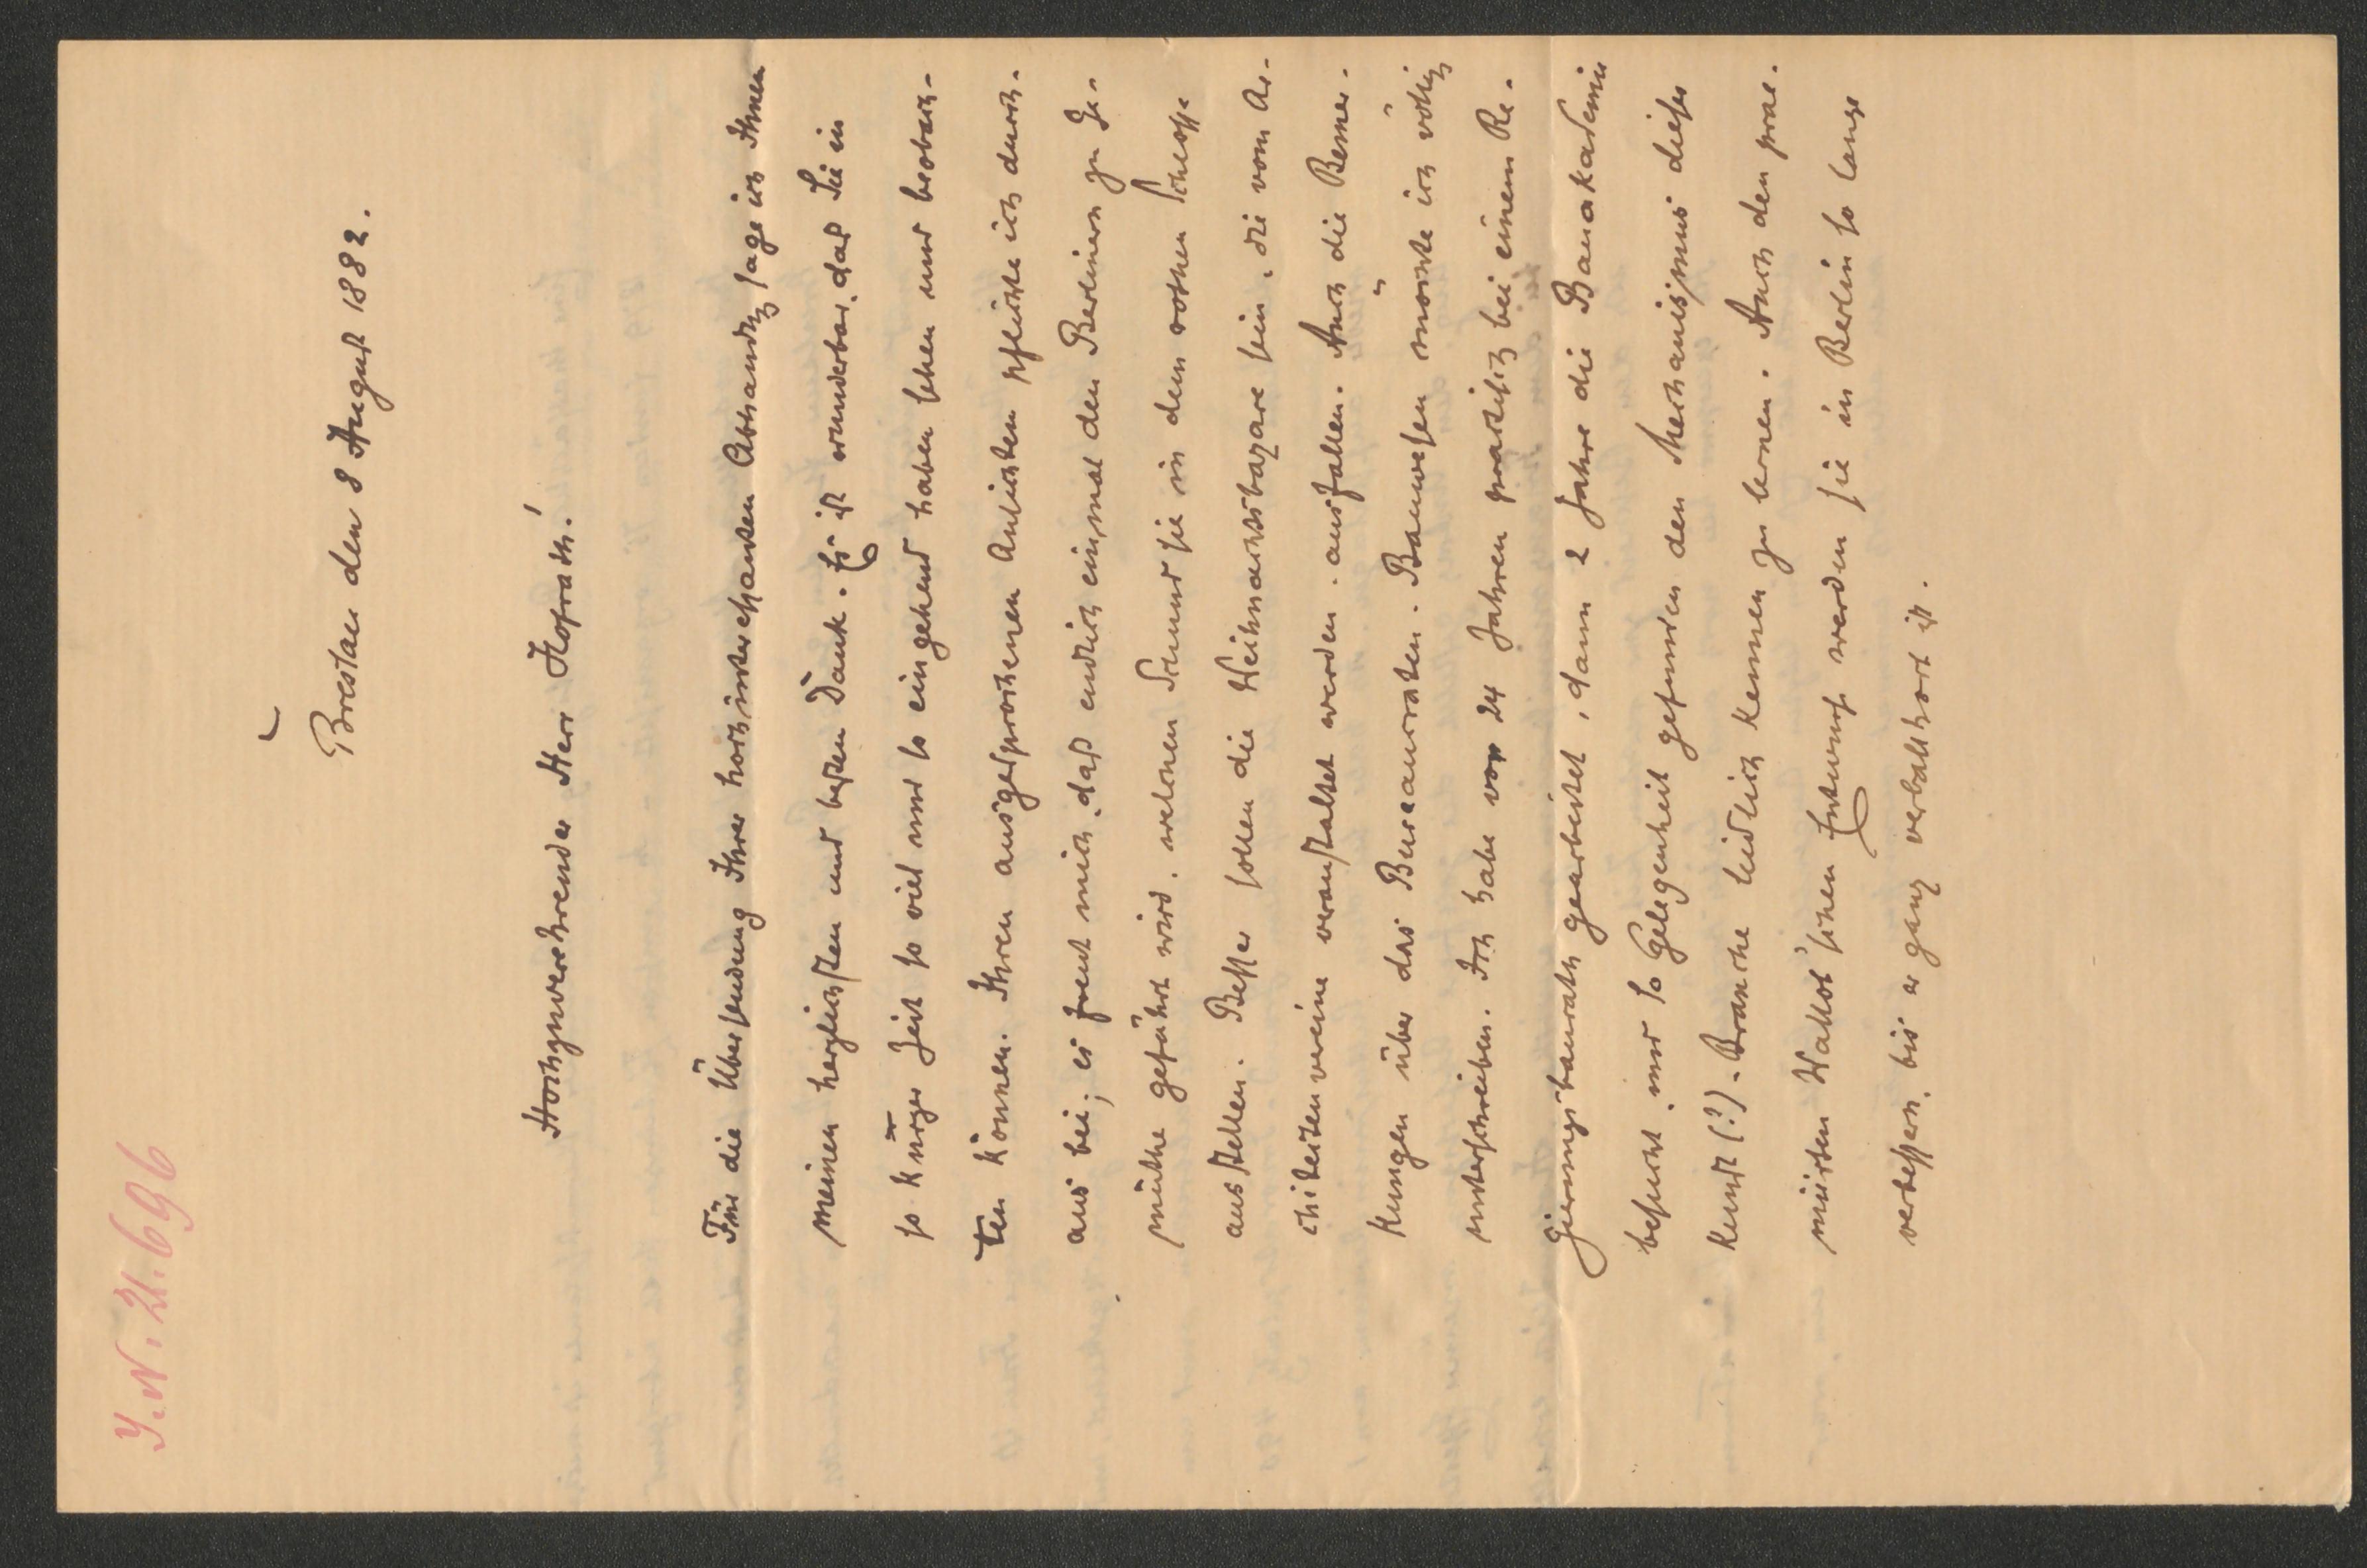 J. N. 21.696
Breslau den 8 August 1882.
Hochzuverehrender Herr Hofrath!
Für die Übersendung Ihrer hochinteressanten Abhandlg sage ich Ihnen
meinen herzlichsten und besten Dank. Es ist wunderbar, daß Sie in
so kurzer Zeit so viel und so eingehend haben sehen und beobach-
ten können. Ihren ausgesprochenen Ansichten pflichte ich durch-
aus bei; es freut mich, daß endlich einmal den Berlinern zu Ge-
müthe geführt wird, welchen Schund sie in dem rothen Schlosse
ausstellen. Besser sollen die Weihnachtsbazare sein, die vom Ar-
chitektenvereine veranstaltet werden, ausfallen. Auch die Bemer-
kungen über das Bureaukraten-Bauwesen möchte ich völlig
unterschreiben. Ich habe vor 24 Jahren praktisch bei einem Re-
gierungsbaurath gearbeitet, dann 2 Jahre die Bauakademie
besucht und so Gelegenheit gefunden den Mechanismus dieser
Kunst(?)-Branche leidlich kennen zu lernen. Auch den prae-
miirten Wallot'schen Entwurf werden sie in Berlin so lange
verbessern, bis er ganz verballhornt ist.